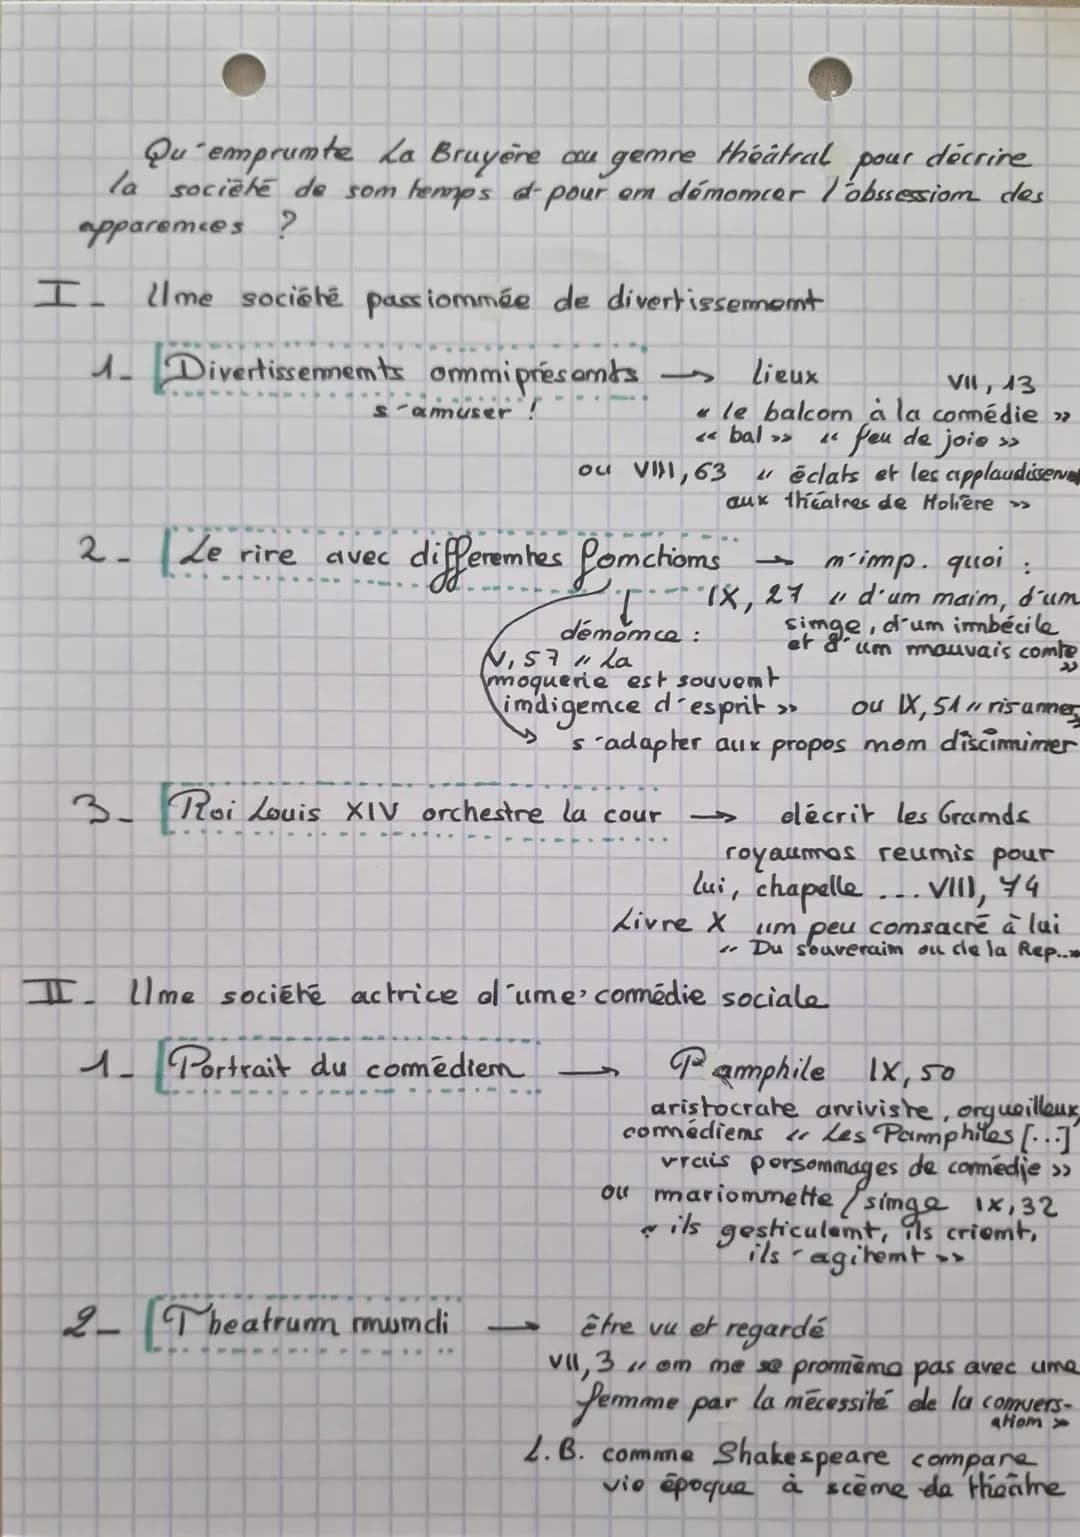 Qu'emprunte La Bruyère au genre théâtral pour décrire
la société de son temps et pour en dénoncer l'obssession des
apparences ?
I - Une société passionnée de divertissement
1 - Divertissements omniprésents → lieux VII, 13
s'amuser ! « le balcon à la comédie »
« bal » « feu de joie »
ou VIII, 63 « éclats et les applaudissem
aux théâtres de Molière »
2 - Le rire avec differentes fonctions → n'imp. quoi :
IX, 27 « d'un nain, d'un
dénonce : singe, d'un imbécile
et d'un mauvais conte »
V, 57 « La
moquerie est souvent
indigence d'esprit » ou IX, 51 « ricanner »
s'adapter aux propos non discriminer
3 - Roi Louis XIV orchestre la cour → décrit les Grands
royaumes reunis pour
lui, chapelle ... VIII, 74
Livre X un peu consacré à lui
« Du souverain ou de la Rep.. »
II - Une société actrice d'une comédie sociale
1 - Portrait du comédien → Pamphile IX, 50
aristocrate arriviste, orgueilleux,
comédiens « Les Pamphiles [...]
vrais personnages de comédie »
ou marionnette / singe IX, 32
« ils gesticulent, ils crient,
ils s'agitent »
2 - Theatrum mundi → être vu et regardé
VII, 3 « on ne se promène pas avec une
femme par la nécessité de la convers-
ation »
L.B. comme Shakespeare compare
vie époque à scène de théâtre